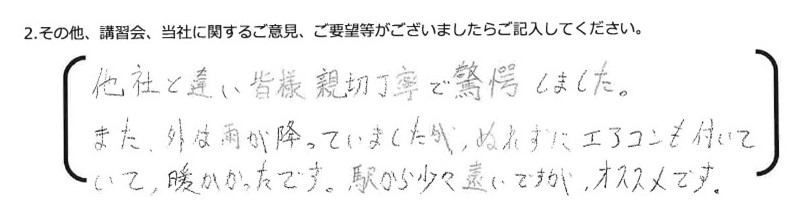 2.その他、講習会、当社に関するご意見、ご要望等がございましたらご記入してください。
他社と違い皆様親切丁寧で驚愕しました。
また、外は雨が降っていましたが、ぬれずにエアコンも付いて
いて、暖かかったです。駅から少々遠いですが、オススメです。